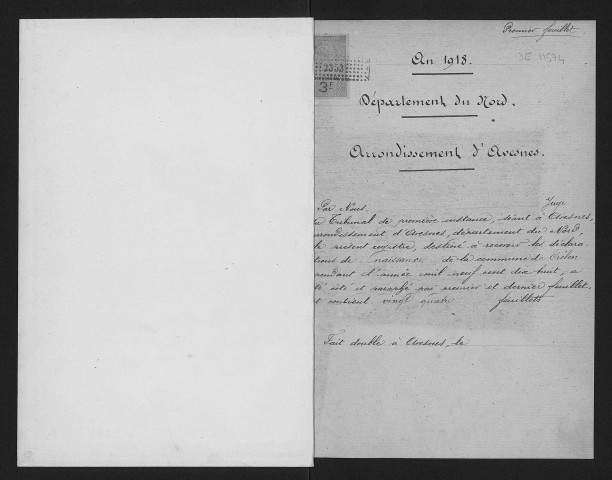 Premier feuillet
3E 11574
3353
3F
An 1918.
Département du Nord.
Arrondissement d'Avesnes.
Par Nous Juge
du Tribunal de première instance, séant à Avesnes,
arrondissement d'Avesnes, département du Nord,
le présent registre, destiné à recevoir les déclara
tions de Naissance de la commune de Trélon
pendant l'année mil neuf cent dix huit, a
été coté et paraphé par premier et dernier feuillet,
et contient vingt quatre feuillets
Fait double à Avesnes, le